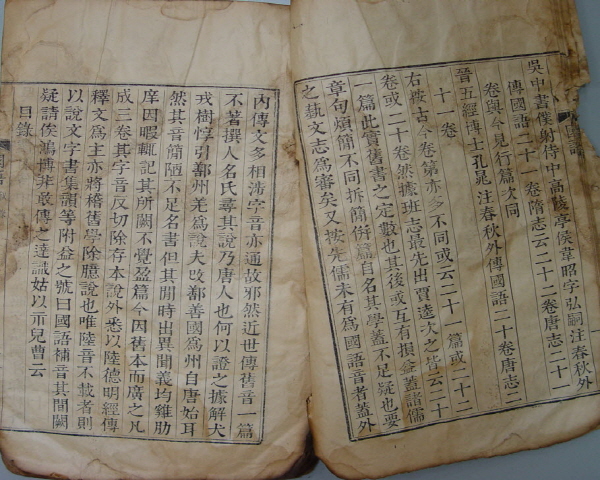 吳中書僕射侍中高陵亭侯韋昭字弘嗣注春秋外
傳國語二十一卷隋志云二十二卷唐志二十一
卷與今見行篇次同
晉五經博士孔晁注春秋外傳國語二十卷唐志二
十一卷
右按古今卷第亦多不同或云二十一篇或二十二
卷或二十卷然據班志最先出賈逵次之皆云二十
一篇此實舊書之定數也其後或互有損益蓋諸儒
章句煩簡不同拆簡併篇自名其學蓋不足疑也要
之藝文志為審矣又按先儒未有為國語音者蓋外
內傳文多相涉字音亦通故邪然近世傳舊音一篇
不著撰人名氏尋其說乃唐人也何以證之據解犬
戎樹惇引鄯州羌為說夫改鄯善國為州自唐始耳
然其音簡陋不足名書但其間時出異聞義均雞肋
庠因暇輒記其所闕不覺盈篇今因舊本而廣之凡
成三卷其字音反切除存本說外悉以陸德明經傳
釋文為主亦將稽舊學除臆說也唯陸音不載者則
以說文字書集韻等附益之號曰國語補音其間闕
疑請俟鴻博非敢傳之達識姑以示兒曹云
目錄
國語